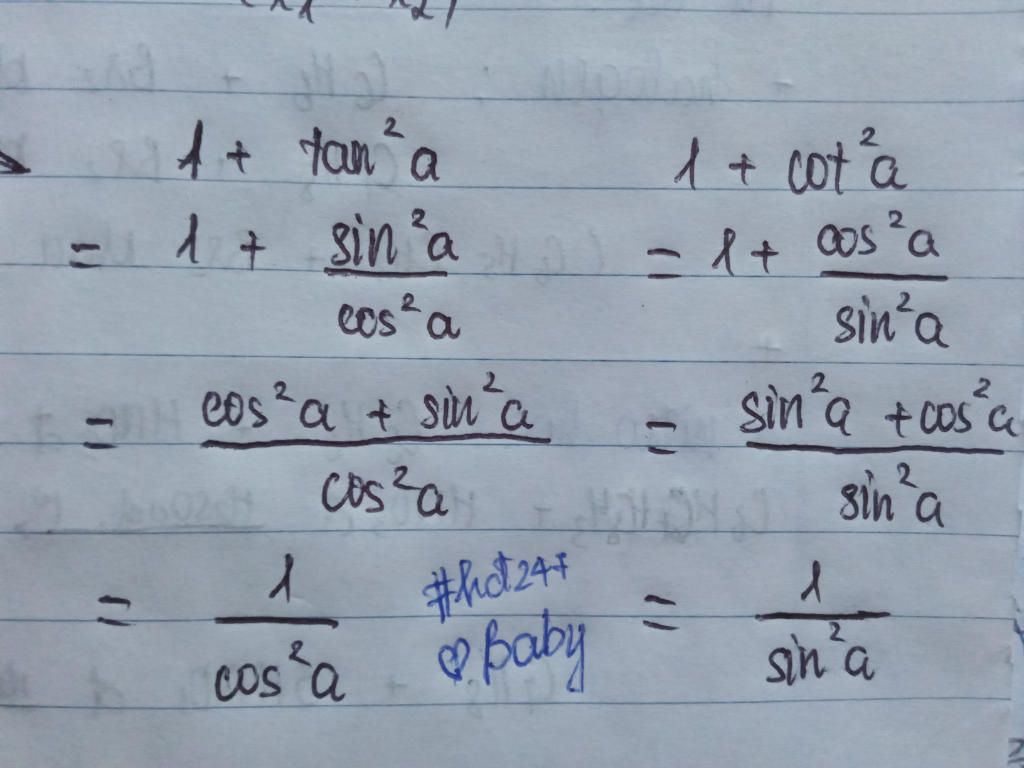 1 + tan²a
= 1 + sin²a / cos²a
= cos²a + sin²a / cos²a
= 1 / cos²a
1 + cot²a
= 1 + cos²a / sin²a
= sin²a + cos²a / sin²a
= 1 / sin²a
#hdt247
♡ Baby